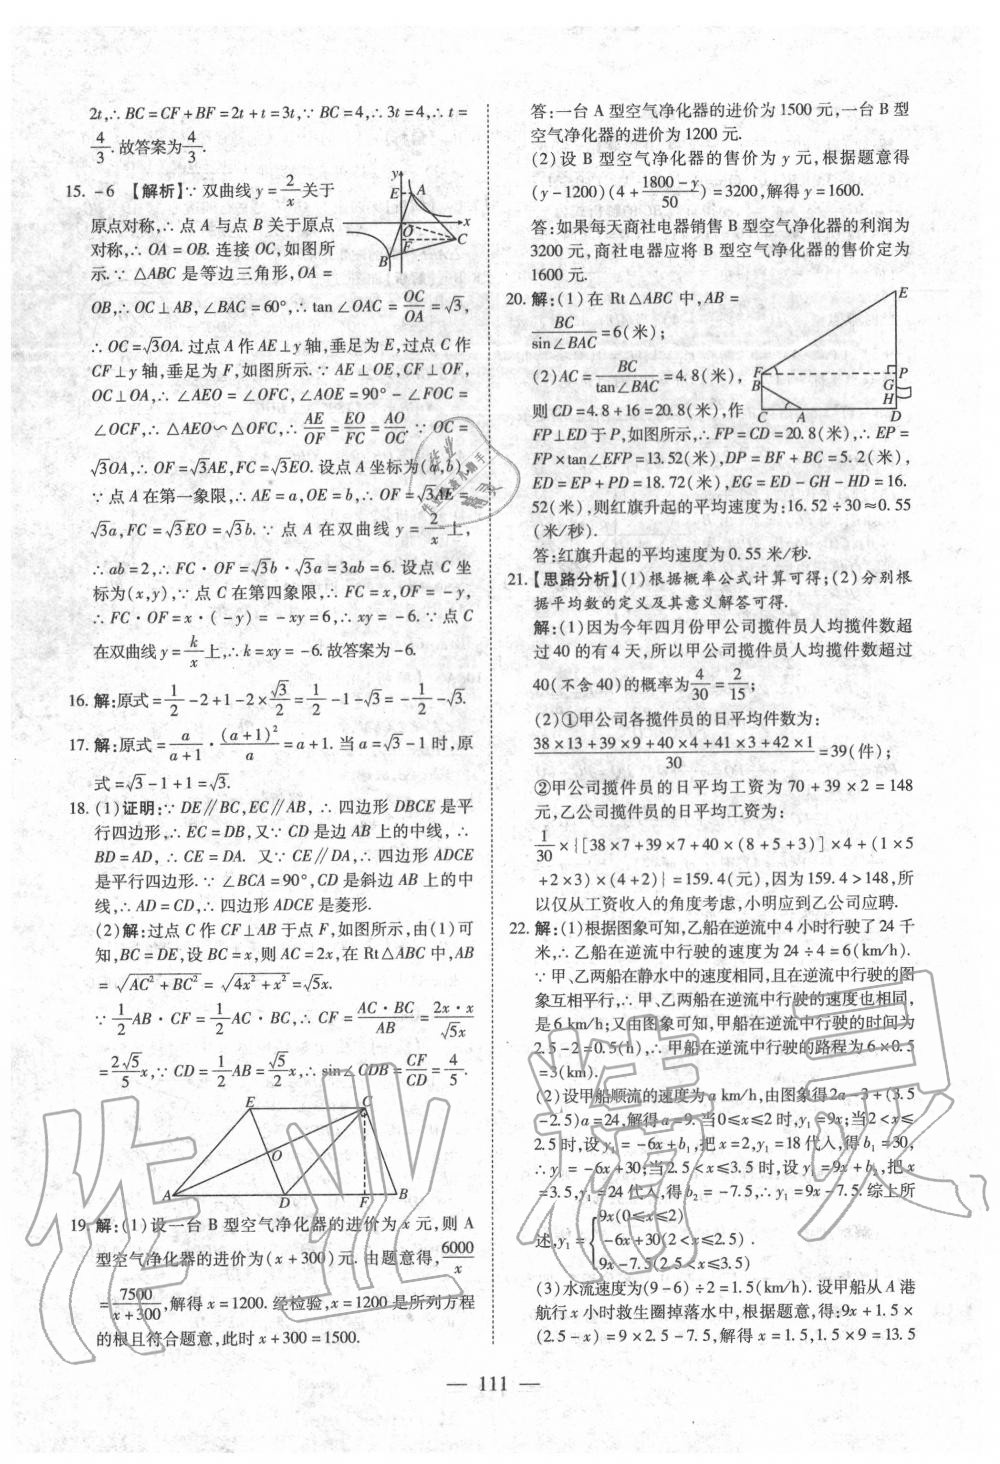 2t,∴BC=CF+BF=2t+t=3t,∵BC=4,∴3t=4,∴t=
4/3.故答案为4/3.
15. -6 【解析】∵双曲线y=2/x关于
原点对称,∴点A与点B关于原点
对称,∴OA=OB.连接OC,如图所
示.∵△ABC是等边三角形,OA=
OB,∴OC⊥AB,∠BAC=60°,∴tan∠OAC=OC/OA=√3,
∴OC=√3OA.过点A作AE⊥y轴,垂足为E,过点C作
CF⊥y轴,垂足为F,如图所示.∵AE⊥OE,CF⊥OF,
OC⊥OA,∴∠AEO=∠OFC,∠AOE=90°-∠FOC=
∠OCF,∴△AEO∽△OFC,∴AE/OF=EO/FC=AO/OC.∵OC=
√3OA,∴OF=√3AE,FC=√3EO.设点A坐标为(a,b),
∵点A在第一象限,∴AE=a,OE=b,∴OF=√3AE=
√3a,FC=√3EO=√3b.∵点A在双曲线y=2/x上,
∴ab=2,∴FC·OF=√3b·√3a=3ab=6.设点C坐
标为(x,y),∵点C在第四象限,∴FC=x,OF=-y,
∴FC·OF=x·(-y)=-xy=6,∴xy=-6.∵点C
在双曲线y=k/x上,∴k=xy=-6.故答案为-6.
16. 解:原式=1/2-2+1-2×√3/2=1/2-1-√3=-1/2-√3.
17. 解:原式=a/(a+1)·(a+1)²/a=a+1.当a=√3-1时,原
式=√3-1+1=√3.
18. (1)证明:∵DE∥BC,EC∥AB,∴四边形DBCE是平
行四边形,∴EC=DB,又∵CD是边AB上的中线,∴
BD=AD,∴CE=DA. 又∵CE∥DA,∴四边形ADCE
是平行四边形.∵∠BCA=90°,CD是斜边AB上的中
线,∴AD=CD,∴四边形ADCE是菱形.
(2)解:过点C作CF⊥AB于点F,如图所示,由(1)可
知,BC=DE,设BC=x,则AC=2x,在Rt△ABC中,AB
=√(AC²+BC²)=√(4x²+x²)=√5x.
∵1/2AB·CF=1/2AC·BC,∴CF=AC·BC/AB=2x·x/√5x
=2√5/5x,∵CD=1/2AB=√5/2x,∴sin∠CDB=CF/CD=4/5.
E C
O
A D F B
19. 解:(1)设一台B型空气净化器的进价为x元,则A
型空气净化器的进价为(x+300)元.由题意得,6000/x
=7500/(x+300),解得x=1200.经检验,x=1200是所列方程
的根且符合题意,此时x+300=1500.
答:一台A型空气净化器的进价为1500元,一台B型
空气净化器的进价为1200元.
(2)设B型空气净化器的售价为y元,根据题意得
(y-1200)(4+(1800-y)/50)=3200,解得y=1600.
答:如果每天商社电器销售B型空气净化器的利润为
3200元,商社电器应将B型空气净化器的售价定为
1600元.
20. 解:(1)在Rt△ABC中,AB=
BC/sin∠BAC=6(米);
(2)AC=BC/tan∠BAC=4.8(米),
则CD=4.8+16=20.8(米),作
FP⊥ED于P,如图所示,∴FP=CD=20.8(米),∴EP=
FP×tan∠EFP=13.52(米),DP=BF+BC=5.2(米),
ED=EP+PD=18.72(米),EG=ED-GH-HD=16.
52(米),则红旗升起的平均速度为:16.52÷30≈0.55
(米/秒).
答:红旗升起的平均速度为0.55米/秒.
21. 【思路分析】(1)根据概率公式计算可得;(2)分别根
据平均数的定义及其意义解答可得.
解:(1)因为今年四月份甲公司揽件员人均揽件数超
过40的有4天,所以甲公司揽件员人均揽件数超过
40(不含40)的概率为4/30=2/15;
(2)①甲公司各揽件员的日平均件数为:
(38×13+39×9+40×4+41×3+42×1)/30=39(件);
②甲公司揽件员的日平均工资为70+39×2=148
元,乙公司揽件员的日平均工资为:
1/30×{[38×7+39×7+40×(8+5+3)]×4+(1×5
+2×3)×(4+2)}=159.4(元),因为159.4>148,所
以仅从工资收入的角度考虑,小明应到乙公司应聘.
22. 解:(1)根据图象可知,乙船在逆流中4小时行驶了24千
米,∴乙船在逆流中行驶的速度为24÷4=6(km/h).
∵甲、乙两船在静水中的速度相同,且在逆流中行驶的图
象互相平行,∴甲、乙两船在逆流中行驶的速度也相同,
是6 km/h;又由图象可知,甲船在逆流中行驶的时间为
2.5-2=0.5(h),∴甲船在逆流中行驶的路程为6×0.5
=3(km).
(2)设甲船顺流的速度为a km/h,由图象得2a-3+(3.5
-2.5)a=24,解得a=9.当0≤x≤2时,y₁=9x;当2<x≤
2.5时,设y₁=-6x+b₁,把x=2,y₁=18代入,得b₁=30,
∴y₁=-6x+30;当2.5<x≤3.5时,设y₁=9x+b₂,把x=
3.5,y₁=24代入,得b₂=-7.5,∴y₁=9x-7.5.综上所
述,y₁={9x(0≤x≤2)
-6x+30(2<x≤2.5)
9x-7.5(2.5<x≤3.5)
(3)水流速度为(9-6)÷2=1.5(km/h).设甲船从A港
航行x小时救生圈掉落水中,根据题意,得:9x+1.5×
(2.5-x)=9×2.5-7.5,解得x=1.5,1.5×9=13.5
— 111 —
作业精灵